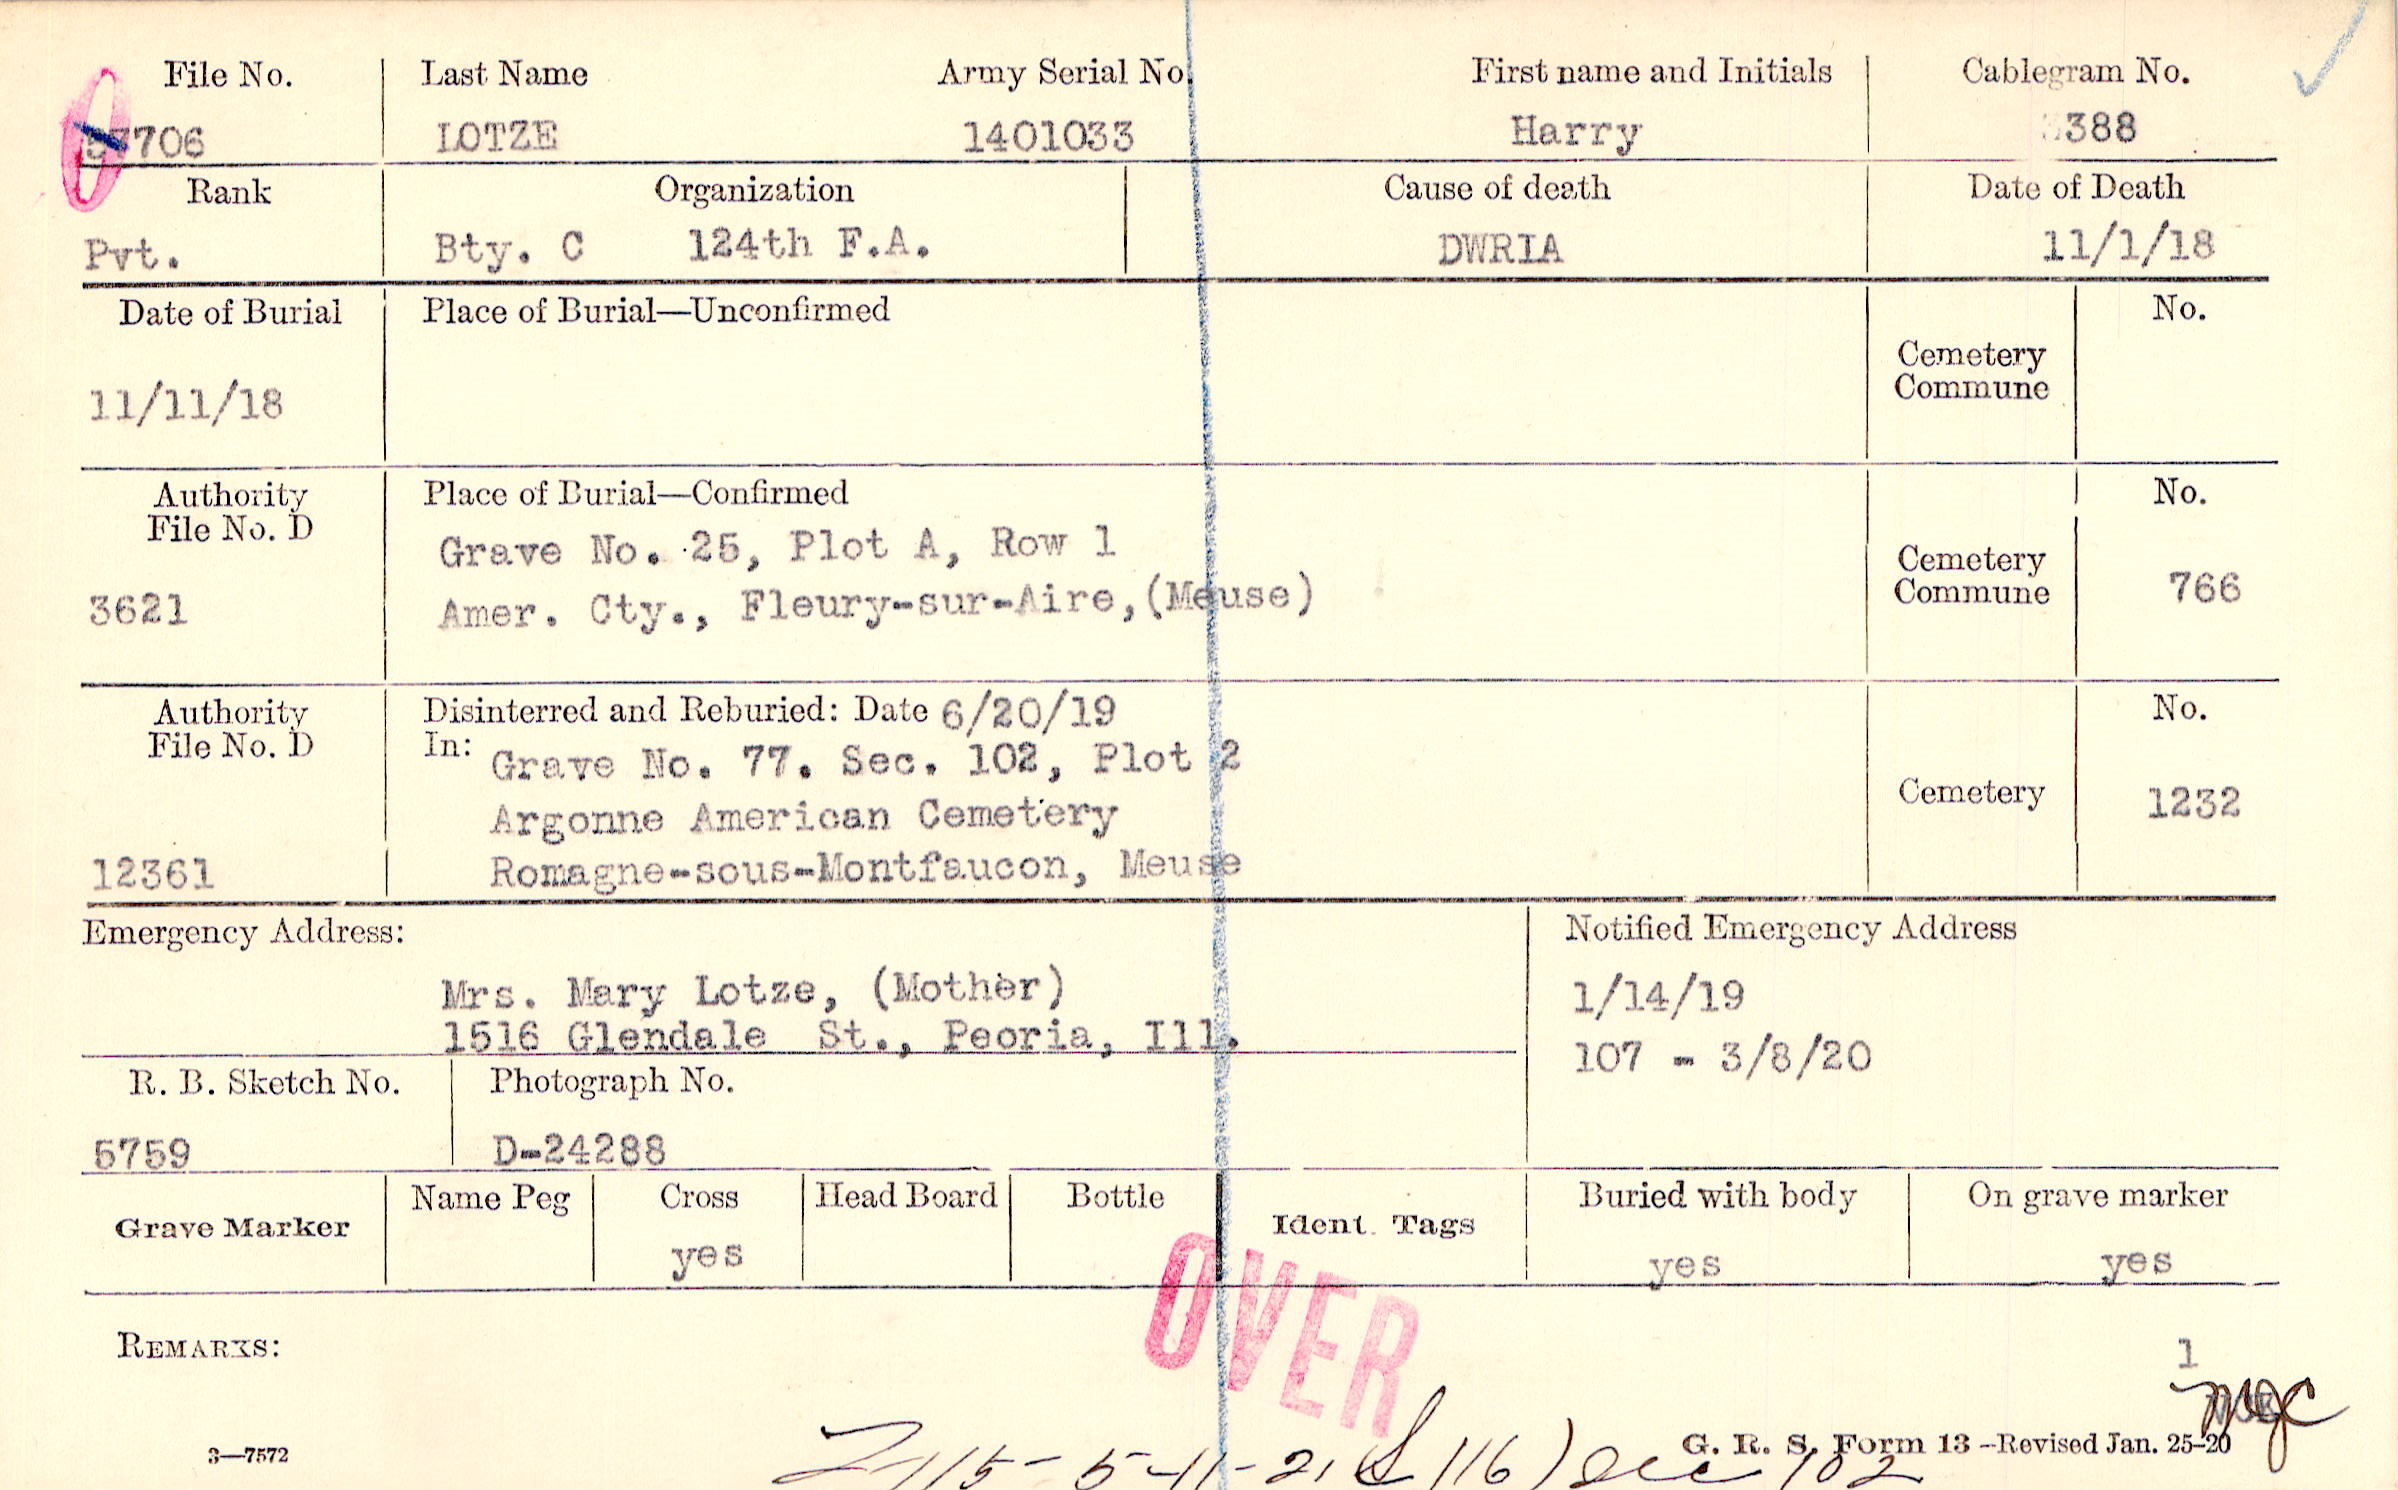 File No. Last Name Army Serial No. First name and Initials Cablegram No.
57706 LOTZE 1401033 Harry 388
Rank Organization Cause of death Date of Death
Pvt. Bty. C 124th F.A. DWRIA 11/1/18
Date of Burial Place of Burial—Unconfirmed No.
Cemetery
Commune
11/11/18
Authority Place of Burial—Confirmed No.
File No. D
Grave No. 25, Plot A, Row 1
Cemetery
Commune 766
3621 Amer. Cty., Fleury-sur-Aire,(Meuse)
Authority Disinterred and Reburied: Date 6/20/19 No.
File No. D In: Grave No. 77. Sec. 102, Plot 2
Argonne American Cemetery Cemetery 1232
12361 Romagne-sous-Montfaucon, Meuse
Emergency Address: Notified Emergency Address
Mrs. Mary Lotze, (Mother) 1/14/19
1516 Glendale St., Peoria, Ill.
107 - 3/8/20
R. B. Sketch No. Photograph No.
5759 D-24288
Grave Marker Name Peg Cross Head Board Bottle Ident. Tags Buried with body On grave marker
yes yes yes
OVER
REMARKS: 1
3—7572 G. R. S. Form 13—Revised Jan. 25-20
115 - 5-11-21 116) Sec 102